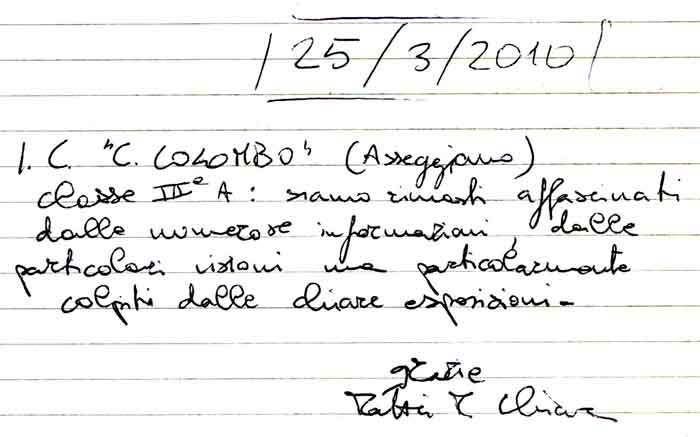 25/3/2010
I. C. "C. COLOMBO" (Asseggiano)
classe IIIª A: siamo rimasti affascinati
dalle numerose informazioni, dalle
particolari visioni ma particolarmente
colpiti dalle chiare esposizioni -
grazie
Chiara